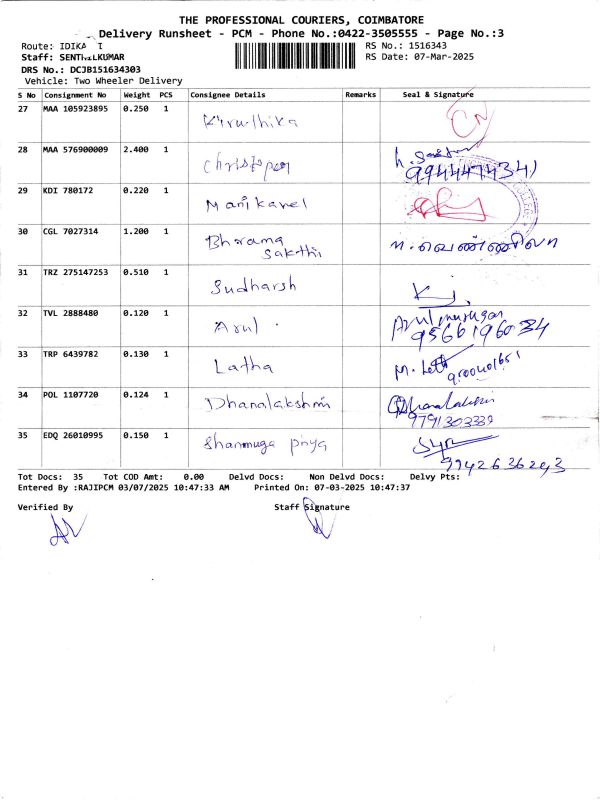 THE PROFESSIONAL COURIERS, COIMBATORE
Delivery Runsheet - PCM - Phone No.:0422-3505555 - Page No.:3
Route: IDIKA
RS No.: 1516343
Staff: SENTHILKUMAR
RS Date: 07-Mar-2025
DRS No.: DCJB151634303
Vehicle: Two Wheeler Delivery
S No Consignment No Weight PCS Consignee Details Remarks Seal & Signature
27 MAA 105923895 0.250 1 Kiruthika
28 MAA 576900009 2.400 1 Christoper
29 KDI 780172 0.220 1 Manikavel
30 CGL 7027314 1.200 1 Bhrama Sakthi
31 TRZ 275147253 0.510 1 Sudharsh
32 TVL 2888480 0.120 1 Arul Arulmurugan
9566196034
33 TRP 6439782 0.130 1 Latha
34 POL 1107720 0.124 1 Dhanalakshmi Dhanalakshmi
9791303339
35 EDQ 26010995 0.150 1 Shanmuga priya
Tot Docs: 35 Tot COD Amt: 0.00 Delvd Docs: Non Delvd Docs: Delvy Pts:
Entered By :RAJIPCM 03/07/2025 10:47:33 AM Printed On: 07-03-2025 10:47:37
Verified By Staff Signature